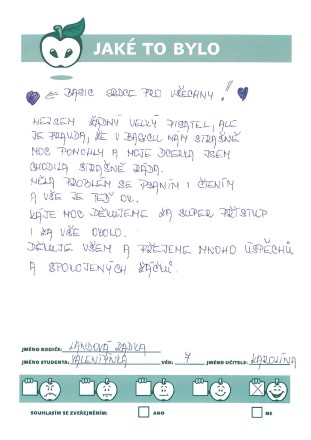 JAKÉ TO BYLO
BASIC SRDCE PRO VŠECHNY!
NEJSEM ŽÁDNÝ VELKÝ PISATEL, ALE
JE PRAVDA, ŽE V BASICU NÁM STRAŠNĚ
MOC POMOHLI A MOJE DCERKA JSEM
CHODILA STRAŠNĚ RÁDA.
MĚLA PROBLÉM SE PSANÍM I ČTENÍM
A VŠE JE TEĎ OK.
KÁJE MOC DĚKUJEME ZA SUPER PŘÍSTUP
I ZA VŠE OKOLO.
DĚKUJE VŠEM A PŘEJEME MNOHO ÚSPĚCHŮ
A SPOKOJENÝCH ŽÁČKŮ.
JMÉNO RODIČE: LANDOVÁ RADKA
JMÉNO STUDENTA: VALENTÝNKA VĚK: 7 JMÉNO UČITELE: KAROLÍNA
SOUHLASÍM SE ZVEŘEJNĚNÍM: ANO NE